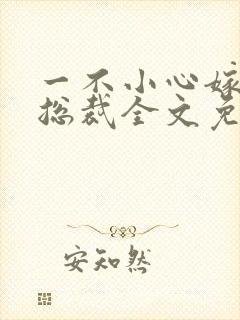 一不小心嫁
总裁全文免
安知然